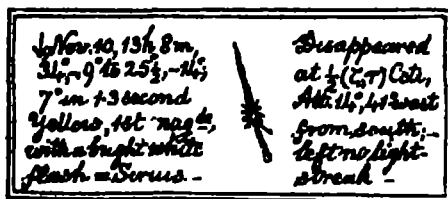 Nov. 10, 13h 8m,
7° in 1·3 second
Yellow, 1st mag de,
with a bright white
flash = Sirius –
Disappeared
at ½(ζ,τ) Ceti,
Alt. 14°, 41° west
from south;–
left no light-
streak –